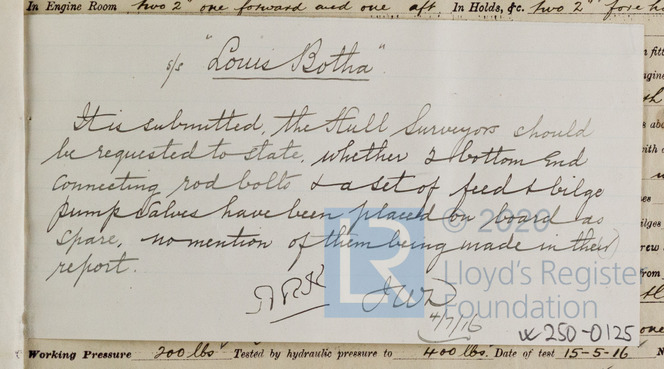 In Engine Room two 2" one forward and one aft In Holds, &c. two 2" fore
s/s "Louis Botha".
It is submitted, the Hull Surveyors should
be requested to state, whether 2 bottom End
connecting rod bolts & a set of feed & bilge
pump valves have been placed on board as
spare, no mention of them being made in their
report.
JWD
4/7/16
© 2020
Lloyd's Register
Foundation
LR
W250-0125
Working Pressure 200 lbs Tested by hydraulic pressure to 400 lbs. Date of test 15-5-16